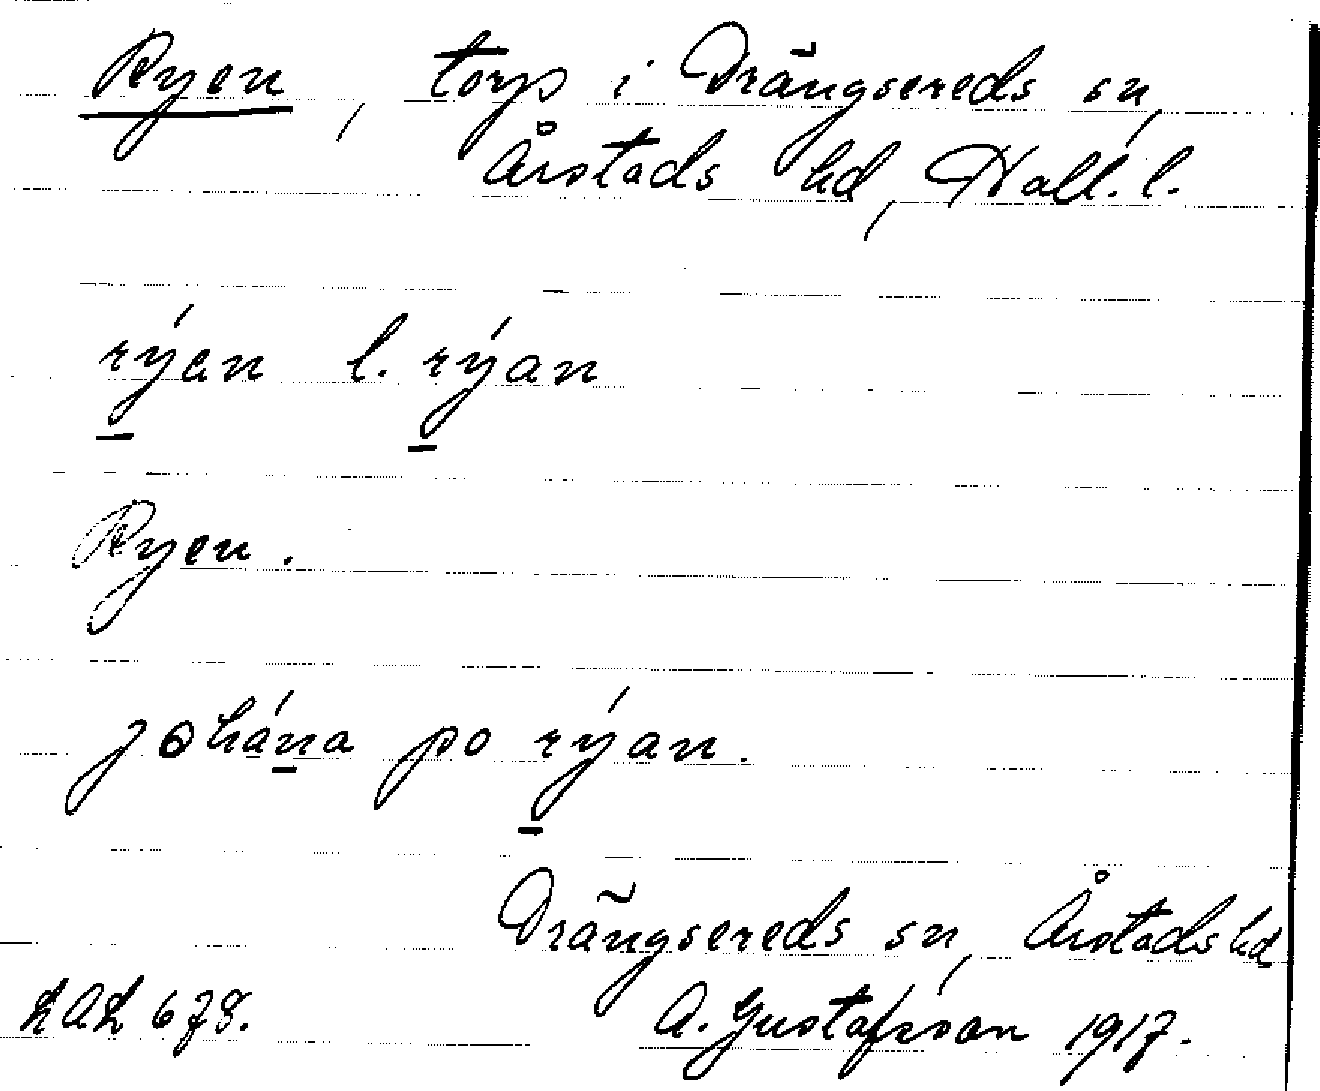 Ryen, torp i Drängsereds sn,
Årstads hd, Hall. l.
rýen l. rýan
Ryen.
johána po rýan.
Drängsereds sn, Årstads hd
LAL 678. A. Gustafsson 1917.